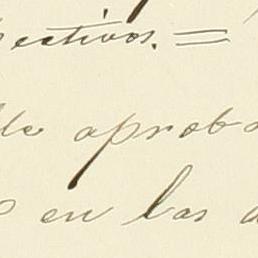 ectivos. =
aprob
en las